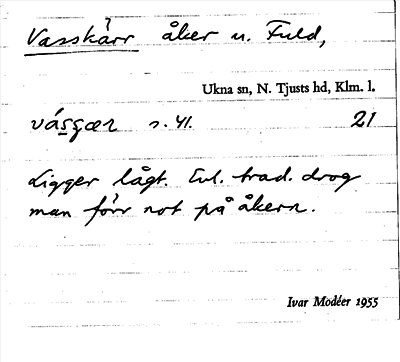 Vasskärr åker u. Fuld,
Ukna sn, N. Tjusts hd, Klm. l.
s. 41. 21
Ligger lågt. Enl. trad. drog
man förr not på åkern.
Ivar Modéer 1955